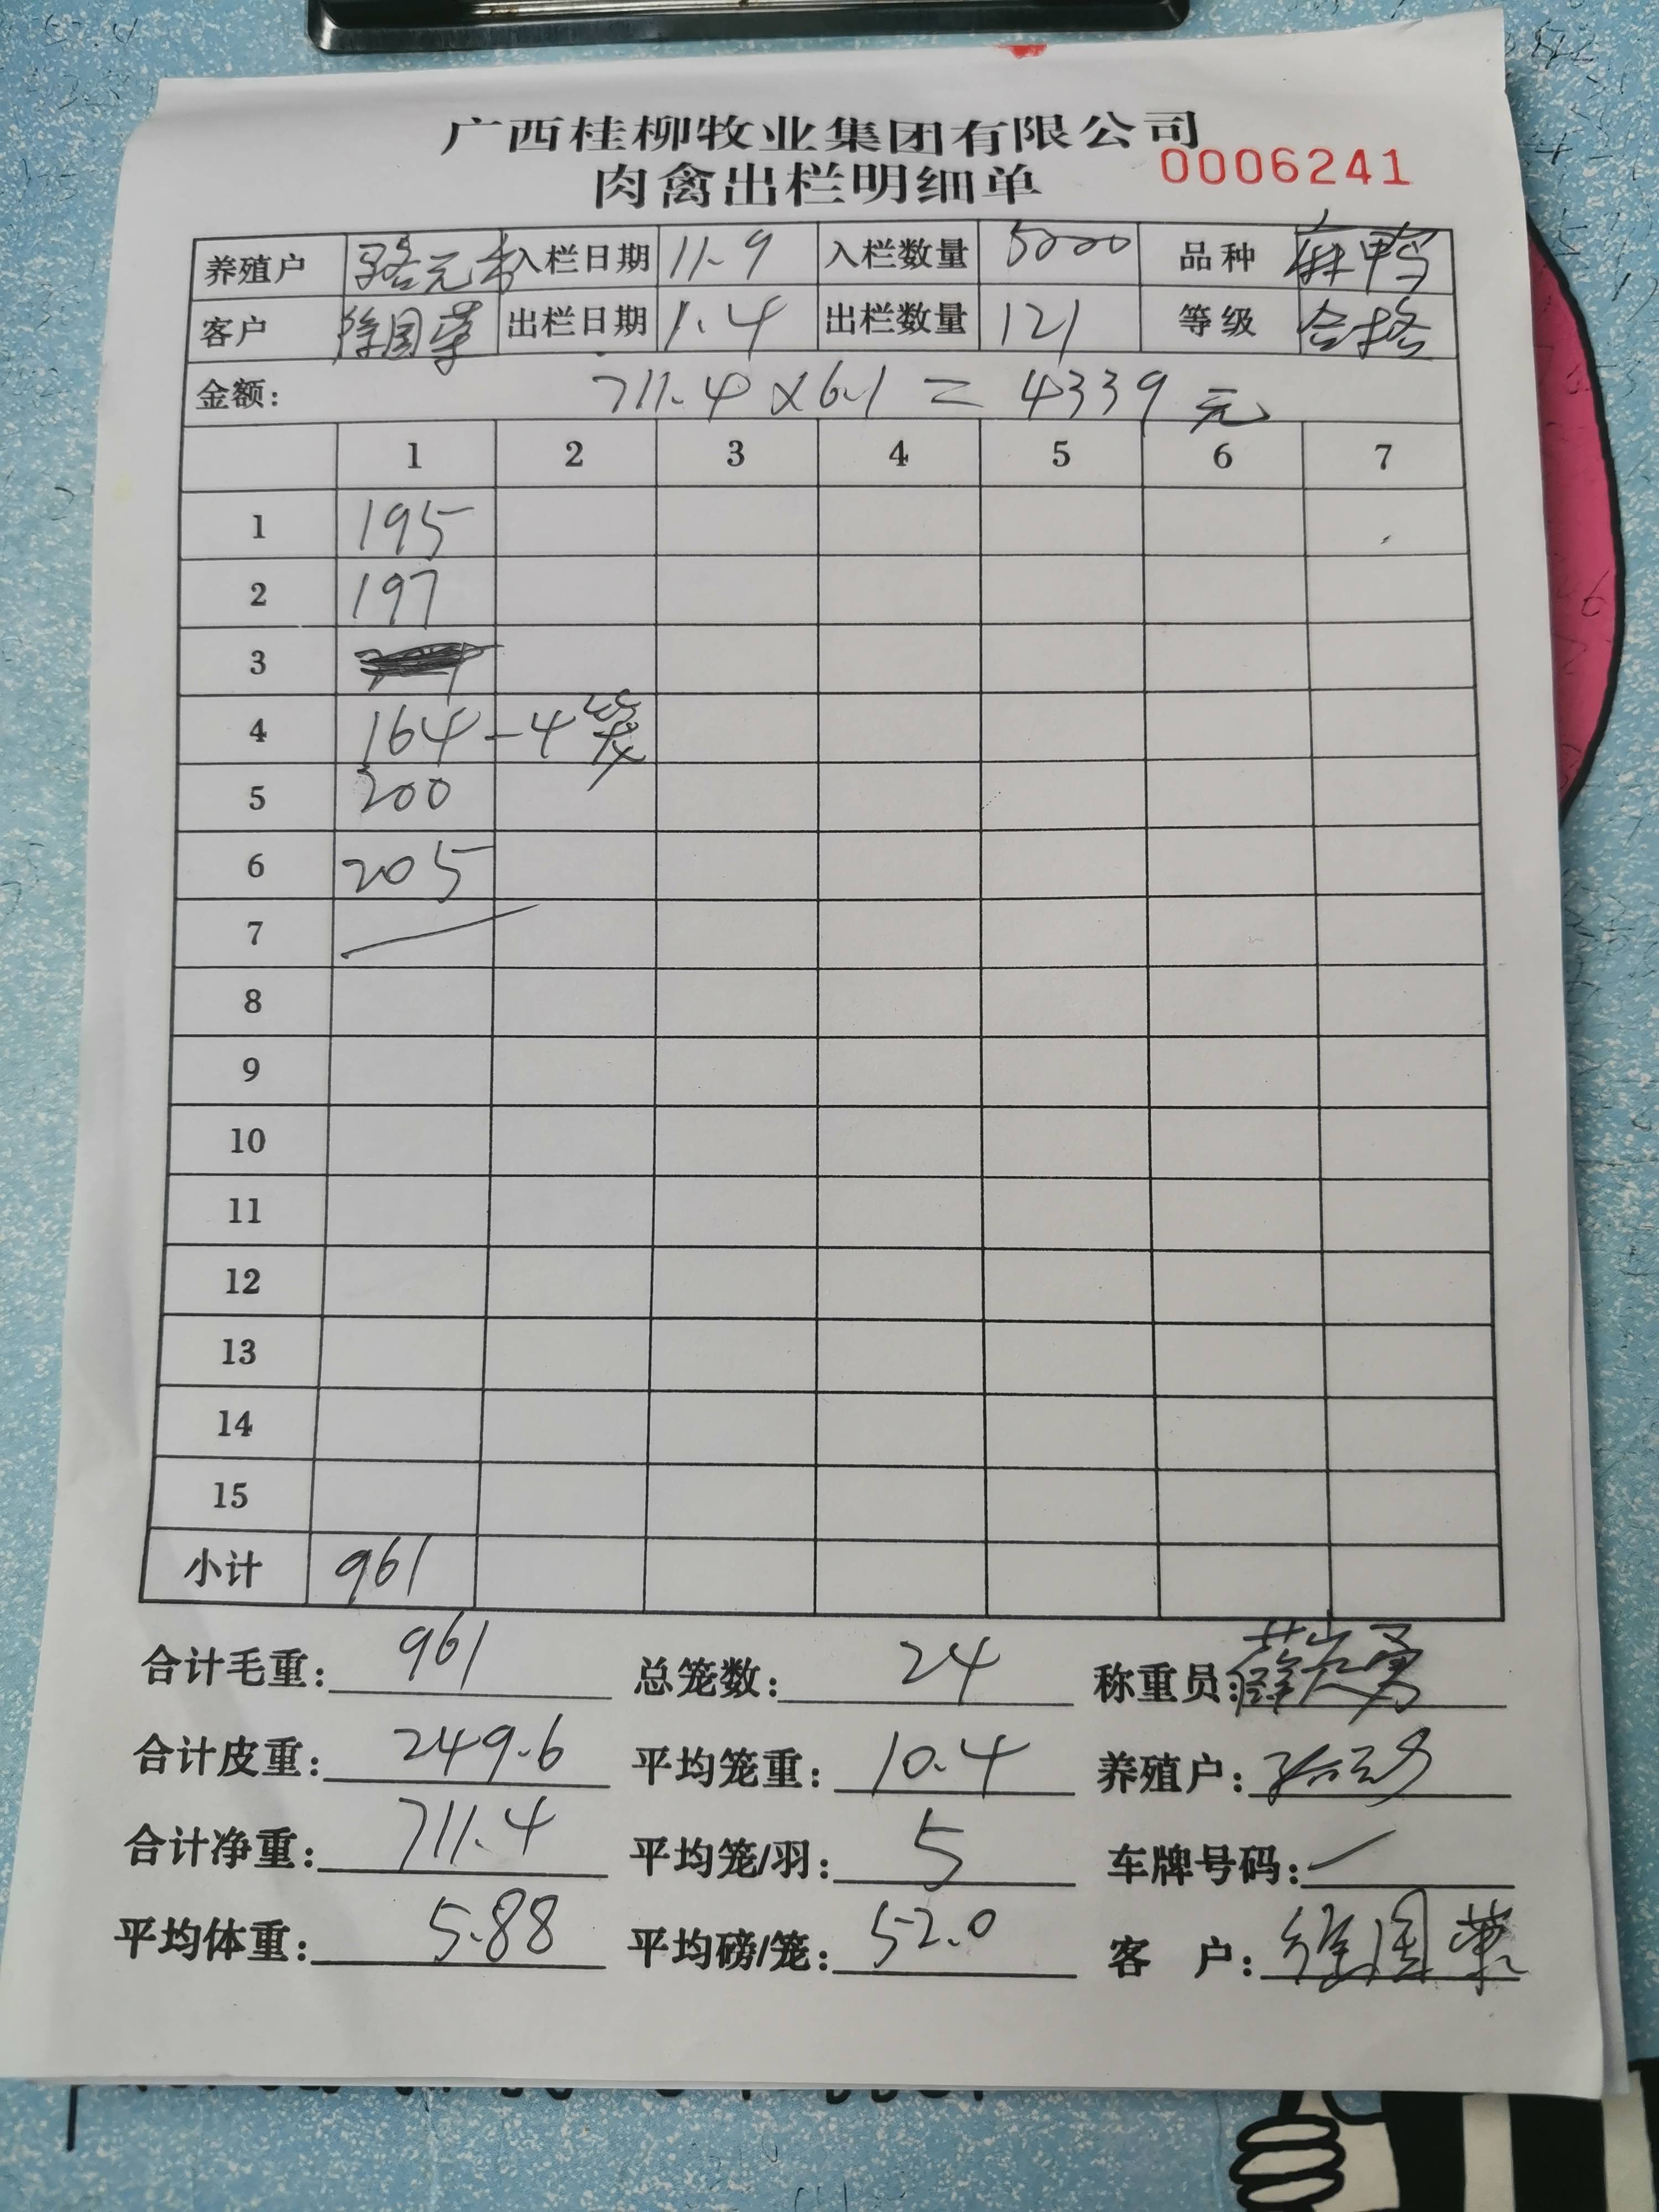 广西桂柳牧业集团有限公司
肉禽出栏明细单 0006241
养殖户 骆元 入栏日期 11.9 入栏数量 5000 品种 麻鸭
客户 徐国荣 出栏日期 1.4 出栏数量 121 等级 合格
金额: 711.4×6.1=4339元
1 2 3 4 5 6 7
1 195
2 197
3
4 164-4笼
5 200
6 205
7
8
9
10
11
12
13
14
15
小计 961
合计毛重: 961 总笼数: 24 称重员: 薛 勇
合计皮重: 249.6 平均笼重: 10.4 养殖户:
合计净重: 711.4 平均笼/羽: 5 车牌号码: /
平均体重: 5.88 平均磅/笼: 52.0 客 户: 徐国荣